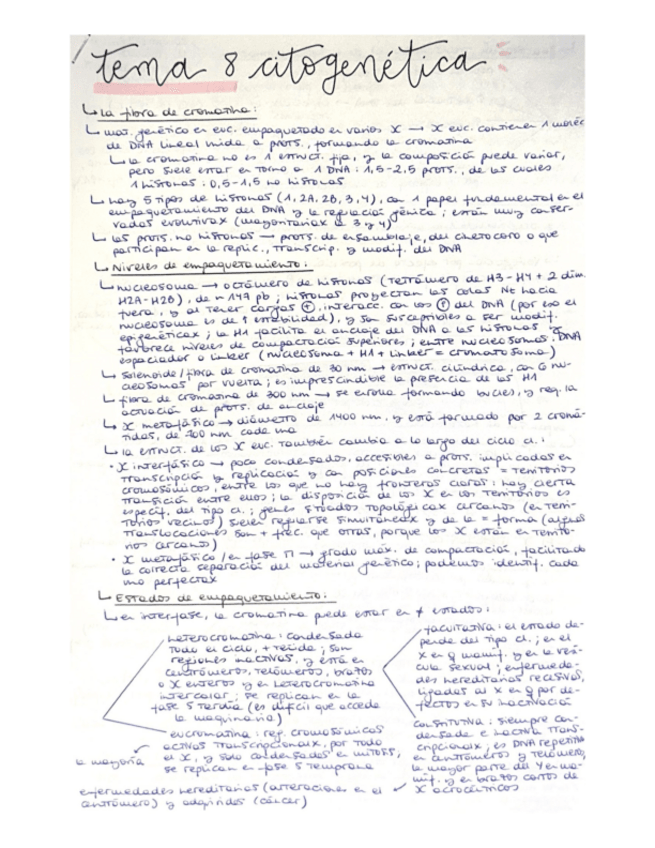 tema 8 citogenética
↳ La fibra de cromatina:
↳ mat. genético en euc. empaquetado en varios X → X euc. contienen 1 moléc
de DNA lineal unida a prots., formando la cromatina
↳ la cromatina no es 1 estruct. fija, y la composición puede variar,
pero suele estar en torno a 1 DNA : 1,5-2,5 prots., de las cuales
1 histonas : 0,5-1,5 no histonas
↳ hay 5 tipos de histonas (1, 2A, 2B, 3, 4), con 1 papel fundamental en el
empaquetamiento del DNA y la regulación génica; están muy conser-
vadas evolutivax (mayoritariax la 3 y 4)
↳ las prots. no histonas → prots. de ensamblaje, del cinetocoro o que
participan en la replic., transcrip. y modif. del DNA
↳ Niveles de empaquetamiento:
↳ nucleosoma → octámero de histonas (tetrámero de H3-H4 + 2 dím.
H2A-H2B), de ≈ 147 pb; histonas proyectan las colas Nt hacia
fuera, y al tener cargas ⊕, interacc. con los del DNA (por eso el
nucleosoma es de ↑ estabilidad), y son susceptibles a ser modif.
epigenéticax; la H1 facilita el anclaje del DNA a las histonas y
favorece niveles de compactación superiores; entre nucleosomas: DNA
espaciador o linker (nucleosoma + H1 + linker = cromatosoma)
↳ solenoide/fibra de cromatina de 30 nm → estruct. cilíndrica, con 6 nu-
cleosomas por vuelta; es imprescindible la presencia de las H1
↳ fibra de cromatina de 300 nm → se enrolla formando bucles, y req. la
actuación de prots. de anclaje
↳ X metafásico → diámetro de 1400 nm, y está formado por 2 cromá-
tidas, de 700 nm cada una
↳ la estruct. de los X euc. también cambia a lo largo del ciclo cl.:
• X interfásico → poco condensados, accesibles a prots. implicadas en
transcripción y replicación y con posiciones concretas = territorios
cromosómicos, entre los que no hay fronteras claras: hay cierta
transición entre ellos; la disposición de los X en los territorios es
específ. del tipo cl.; genes situados topológicax cercanos (en terri-
torios vecinos) suelen regularse simultáneax y de la = forma (algunas
translocaciones son + frec. que otras, porque los X están en territo-
rios cercanos)
• X metafásico / en fase M → grado máx. de compactación, facilitando
la correcta separación del material genético; podemos identif. cada
uno perfectax
↳ Estados de empaquetamiento:
↳ en interfase, la cromatina puede estar en ≠ estados:
heterocromatina: condensada
todo el ciclo, + teñida; son
regiones inactivas, y está en
centrómeros, telómeros, brazos
o X enteros y en heterocromatina
intercalar; se replican en la
fase S tardía (es difícil que acceda
la maquinaria)
eucromatina: reg. cromosómicas
activas transcripcionalx, por todo
el X, y solo condensadas en mitosis,
se replican en fase S temprana
facultativa: el estado de-
pende del tipo cl.; en el
X en ♀ mamíf. y en la vesí-
cula sexual; enfermeda-
des hereditarias recesivas,
ligadas al X en ♀ por de-
fectos en su inactivación
constitutiva: siempre con-
densada e inactiva trans-
cripcionalx; es DNA repetitivo
en centrómeros y telómeros,
la mayor parte del Y en ma-
míf. y en brazos cortos de
X acrocéntricos
la mayoría
enfermedades hereditarias (alteraciones en el
centrómero) y adquiridas (cáncer)